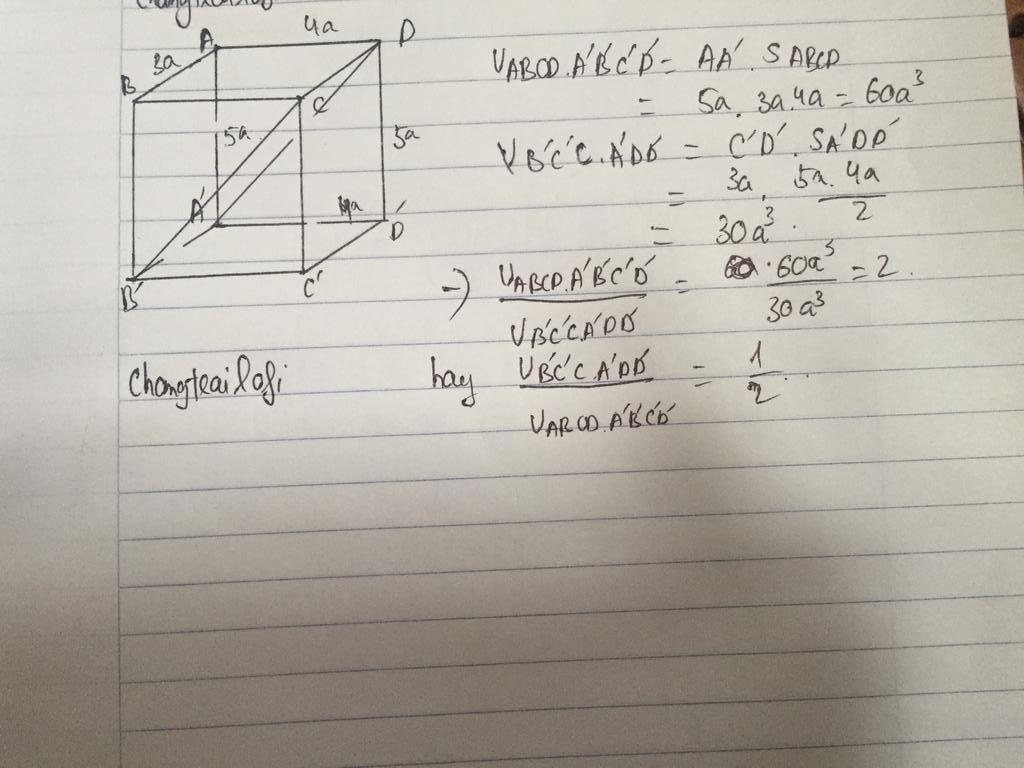 4a
A D
3a
B C
5a 5a
A' 4a D'
B' C'
VABCD.A'B'C'D' = AA'.SABCD
= 5a.3a.4a = 60a³
VB'C'C.A'D'D = C'D'.SA'DD'
= 3a. 5a.4a/2
= 30a³.
→ VABCD.A'B'C'D' / VB'C'CA'DD' = 60a³/30a³ = 2.
Changtrailofi hay VB'C'C.A'DD' / VABCD.A'B'C'D' = 1/2.